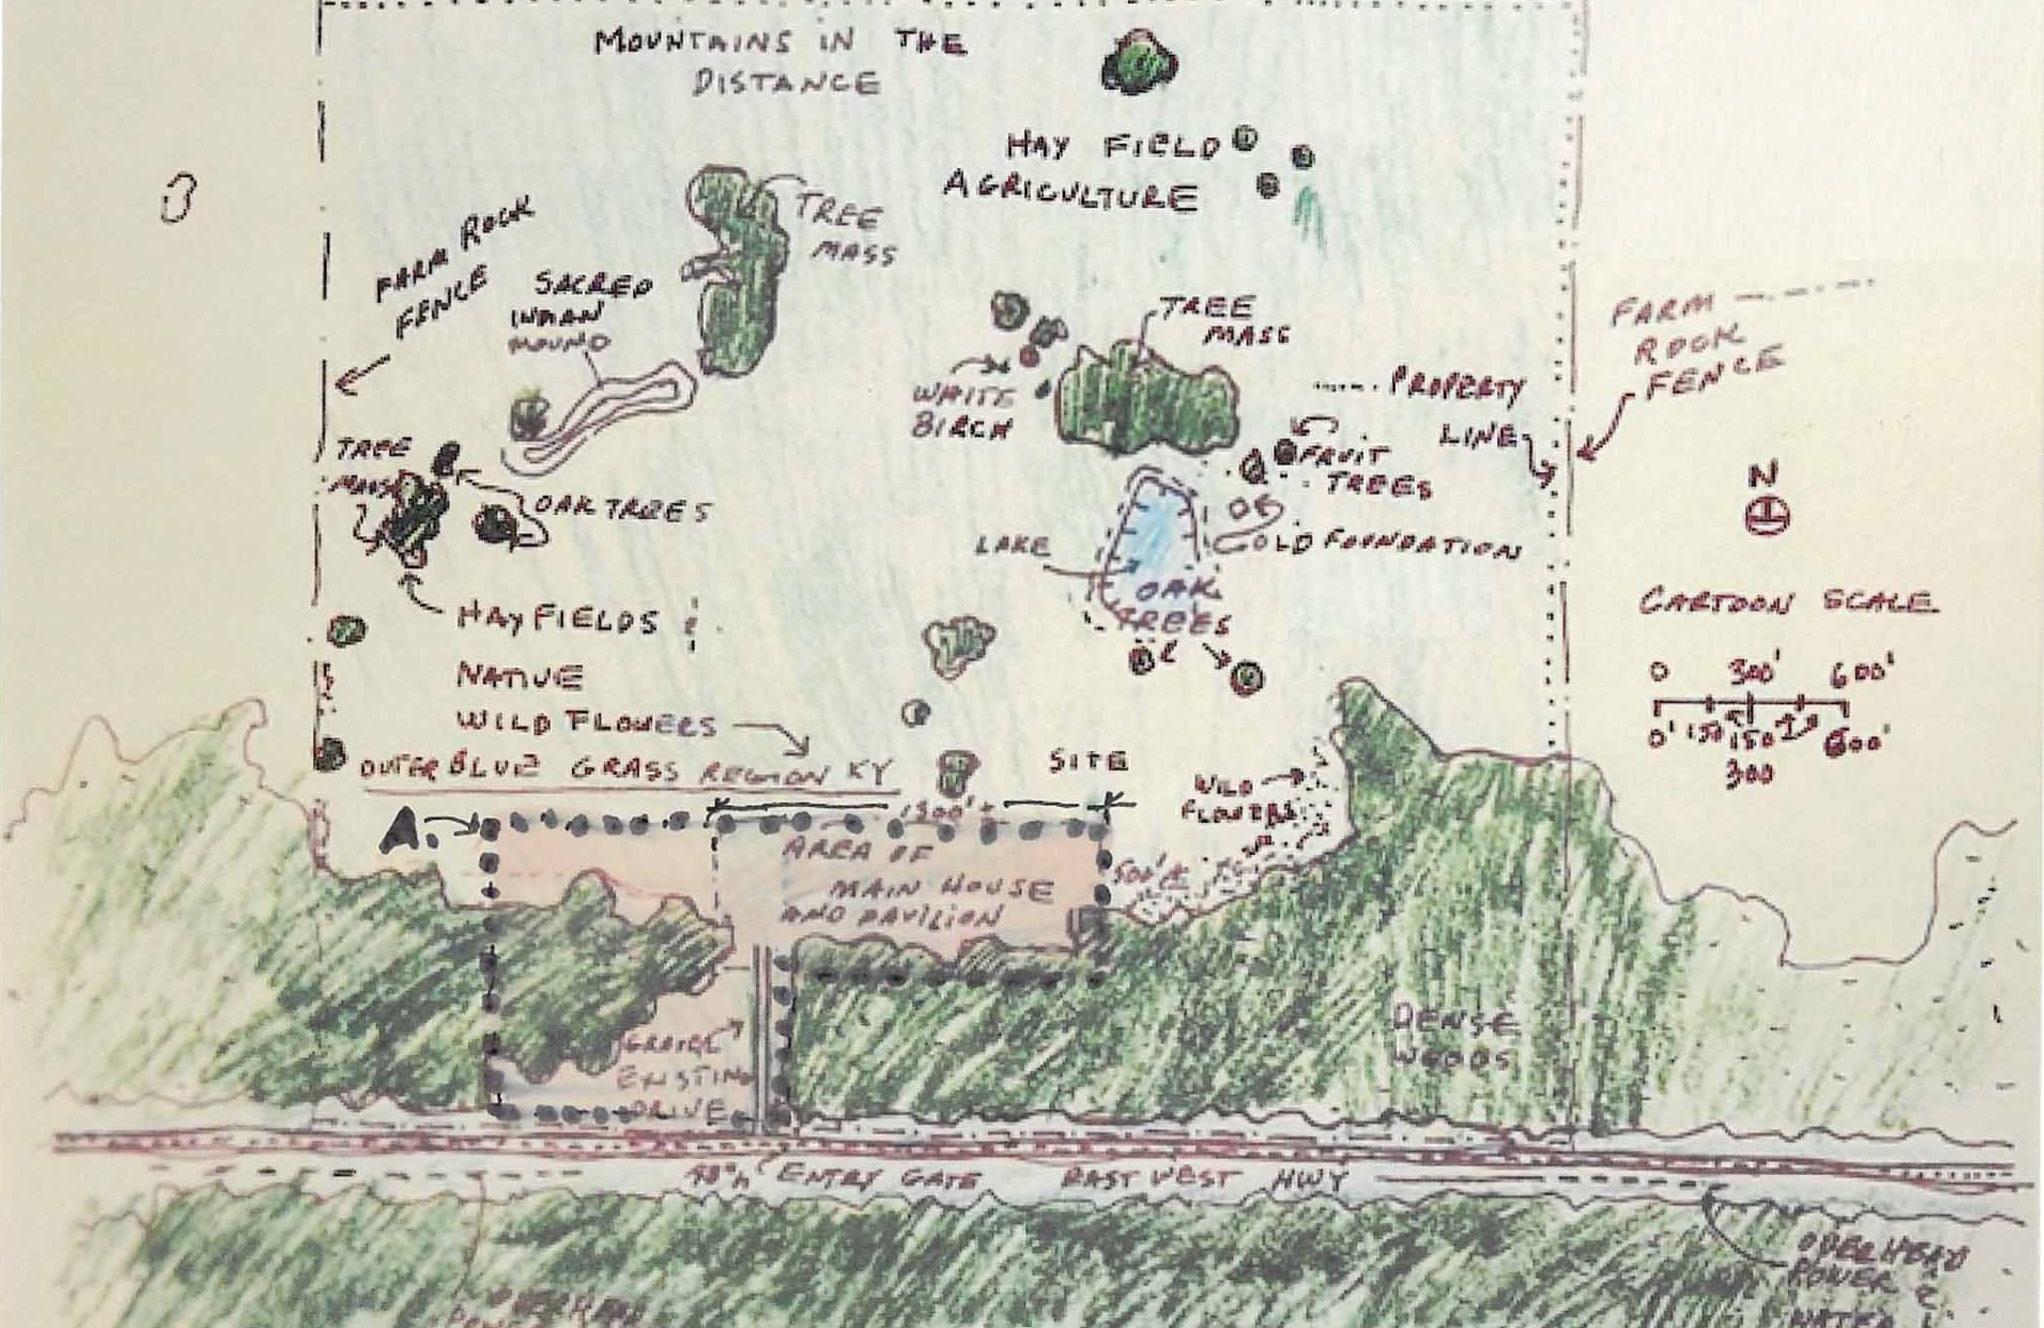 MOUNTAINS IN THE
DISTANCE
HAY FIELD
AGRICULTURE
TREE
MASS
FARM ROCK
FENCE
SACRED
INDIAN
MOUND
TREE
MASS
WHITE
BIRCH
FARM
ROCK
FENCE
PROPERTY
LINE
TREE
MASS
OAK TREES
FRUIT
TREES
OLD FOUNDATION
LAKE
OAK
TREES
N
CARTOON SCALE
0 300' 600'
0' 150 150 600'
300
HAY FIELDS
NATIVE
WILD FLOWERS
OUTER BLUE GRASS REGION KY
SITE
WILD
FLOWERS
A.
1300' ±
AREA OF
MAIN HOUSE
AND PAVILION
500' ±
EXISTING
DRIVE
DENSE
WOODS
ENTRY GATE
EAST WEST HWY
OVERHEAD
POWER
WATER
OVERHEAD
POWER